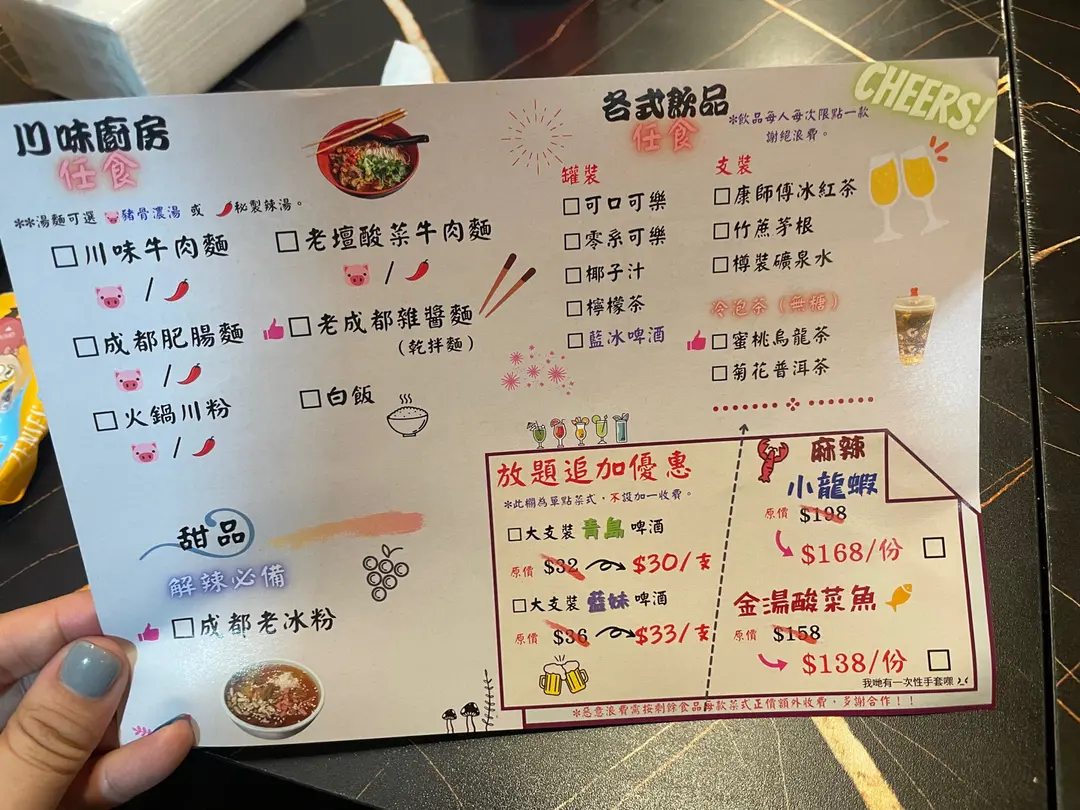 川味廚房
任食
**湯麵可選 豬骨濃湯 或 秘製辣湯。
川味牛肉麵
/
老壇酸菜牛肉麵
/
成都肥腸麵
/
老成都雜醬麵
(乾拌麵)
火鍋川粉
/
白飯
甜品
解辣必備
成都老冰粉
各式飲品
任食
*飲品每人每次限點一款
謝絕浪費。
CHEERS!
罐裝
可口可樂
零系可樂
椰子汁
檸檬茶
藍冰啤酒
支裝
康師傅冰紅茶
竹蔗茅根
樽裝礦泉水
冷泡茶(無糖)
蜜桃烏龍茶
菊花普洱茶
放題追加優惠
*此欄為單點菜式,不設加一收費。
大支裝 青島 啤酒
原價 $32 $30/支
大支裝 藍妹 啤酒
原價 $36 $33/支
麻辣
小龍蝦
原價 $198
$168/份
金湯酸菜魚
原價 $158
$138/份
我哋有一次性手套㗎
*惡意浪費需按剩餘食品每款菜式正價額外收費,多謝合作!!